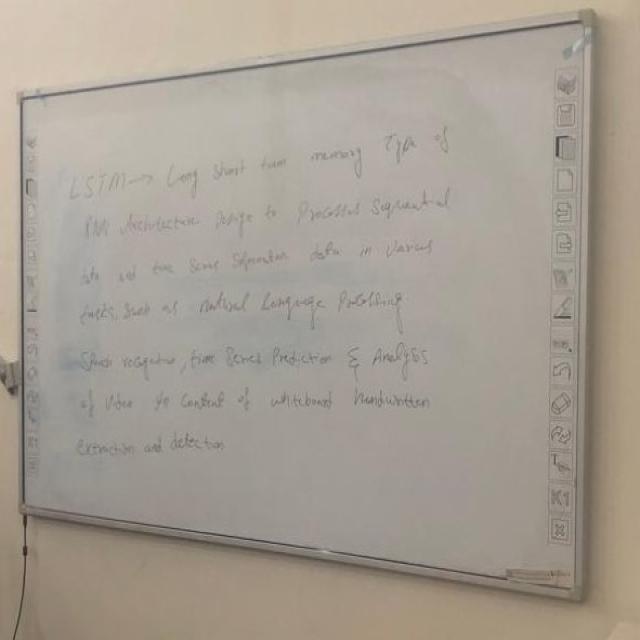 LSTM → Long Short term memory Type of
RNN Architecture Design to Processes Sequential
data and time Series data in various
tasks, Such as Natural Language Processing
Speech recognition, time Series Prediction & Analysis
of Video to content of whiteboard handwritten
extraction and detection